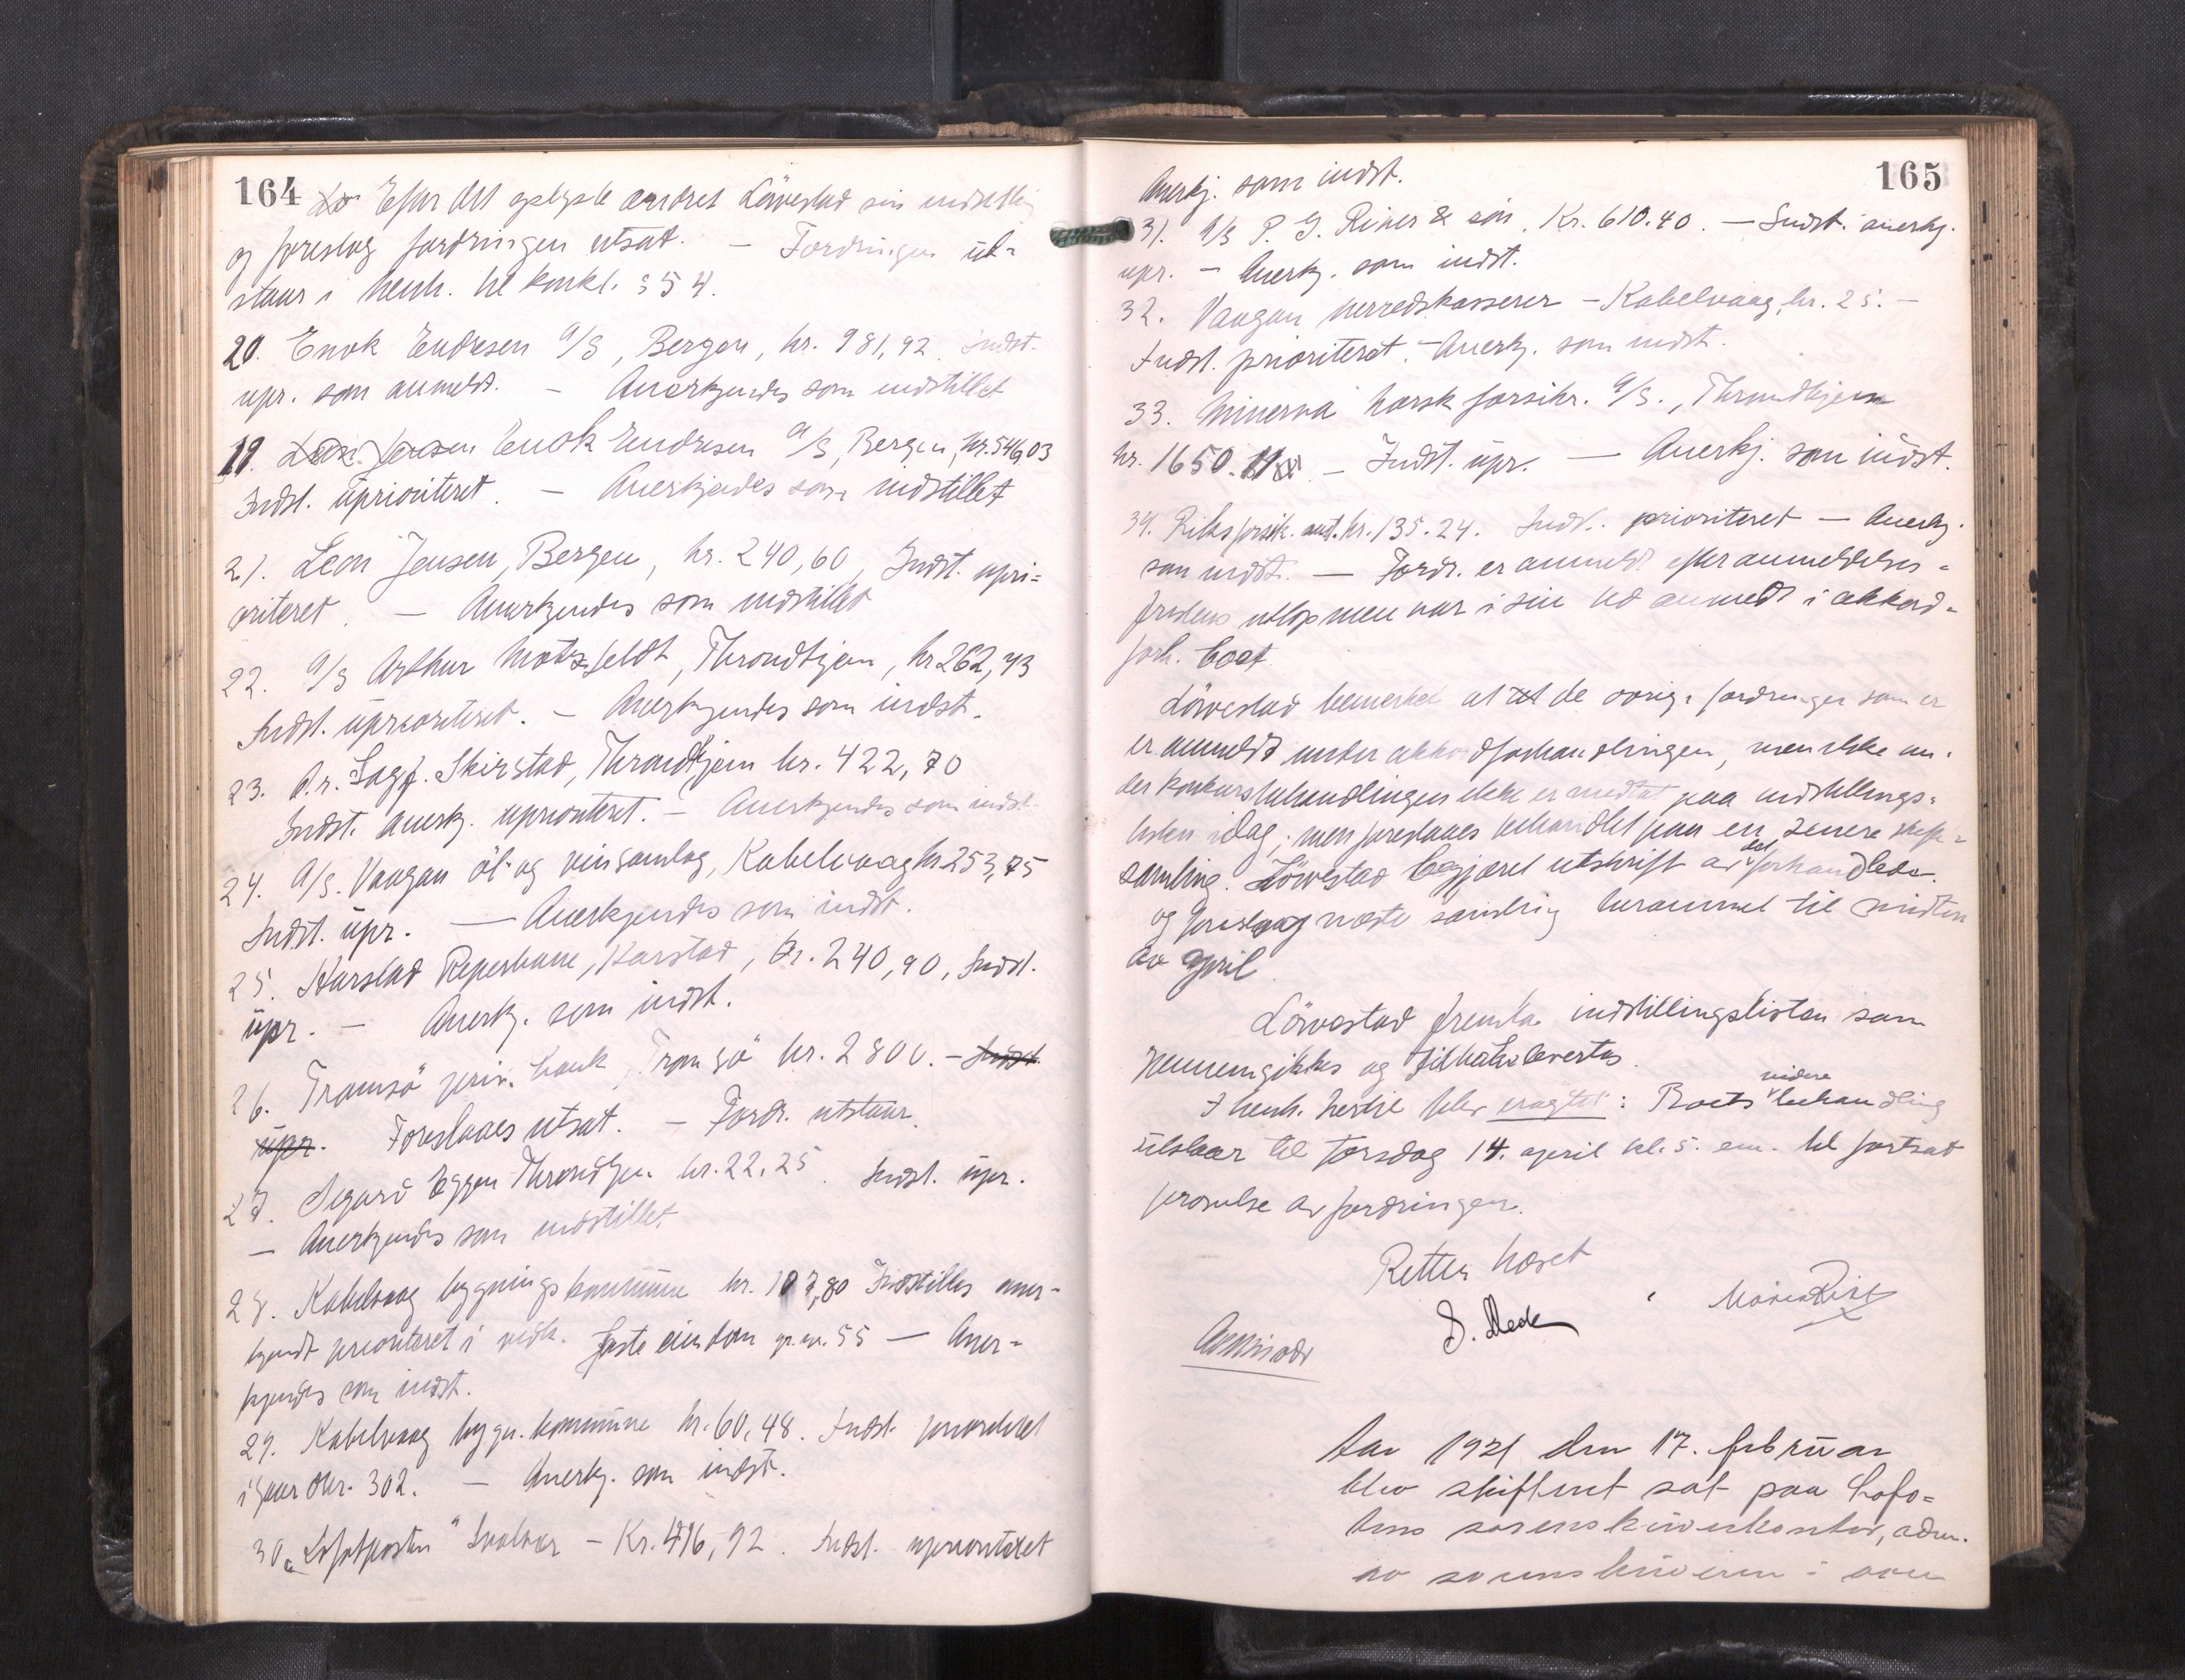 164
Efter det oplyste ændret Löwestad sin indstilling
og foreslog fordringen utsat. — Fordringen ut-
staar i henh. til konkl. § 54.
20. Enok Endresen A/S, Bergen, kr. 981,92. Indst.
upr. som anmeldt. — Anerkjendes som indstillet
19. Leon Jensen Enok Endresen A/S, Bergen, kr. 546,03
Indst. uprioriteret. — Anerkjendes som indstillet
21. Leon Jensen, Bergen, kr. 240,60, Indst. upri-
oriteret. — Anerkjendes som indstillet
22. A/S Arthur Motzfeldt, Throndhjem, kr 262,43
Indst. uprioriteret. — Anerkjendes som indst.
23. O.r. Sagf. Skirstad, Throndhjem kr. 422,70
Indst. anerkj. uprioriteret. — Anerkjendes som indst.
24. A/S. Vaagan öl- og vinsamlag, Kabelvaag kr 253,75
Indst. upr. — Anerkjendes som indst.
25. Harstad Reperbane, Harstad, kr. 240,90, Indst.
upr. — Anerkj. som indst.
26. Tromsö priv. bank, Tromsö kr. 2800. — Indst.
upr. Foreslaaes utsat. — Fordr. utstaar.
27. Sigurd Eggen Throndhjem kr. 22,25. Indst. upr.
— Anerkjendes som indstillet
28. Kabelvaag bygningskommune kr. 107,80 Indstilles aner-
kjendt prioriteret i vedk. faste eiendom gr. nr. 55 — Aner-
kjendes som indst.
29. Kabelvaag bygn. kommune kr. 60,48. Indst. prioriteret
i gaar 302. — Anerkj. som indst.
30. "Lofotposten" Svolvær — Kr. 416,92. Indst. uprioriteret
165
Anerkj. som indst.
31. A/S P. G. Rieber & sön, Kr. 610.40. — Indst. anerkj.
upr. — Anerkj. som indst.
32. Vaagan herredskasserer — Kabelvaag, kr. 25. —
Indst. prioriteret. — Anerkj. som indst.
33. Minerva norsk forsikr. A/S., Throndhjem
kr. 1650.11 — Indst. upr. — Anerkj. som indst.
34. Riksforsik. anst. kr. 135.24. Indst. prioriteret — Anerkj.
som indst. — Fordr. er anmeldt efter anmeldelses-
fristens utlop men var i sin tid anmeldt i akkord-
forh. boet.
Löwestad bemerket at de övrige fordringer som er
er anmeldt under akkordforhandlingen, men ikke un-
der konkursbehandlingen ikke er medtat paa indstillings-
listen idag, men foreslaaes behandlet paa en senere skifte-
samling. Löwestad begjæret utskrift av det forhandlede
og foreslaar næste samling berammet til midten
av april.
Löwestad fremla indstillingslisten som
gjennemgikkes og tilbakelevertes.
I henh. hertil blev eragtet: Boets videre behandling
utstaar til torsdag 14. april kl. 5. em. til fortsat
prøvelse av fordringer.
Retten hævet
D. Mede
Aar 1921 den 17. februar
blev skifteret sat paa Lofo-
tens sorenskriverkontor, adm.
av sorenskriveren i over